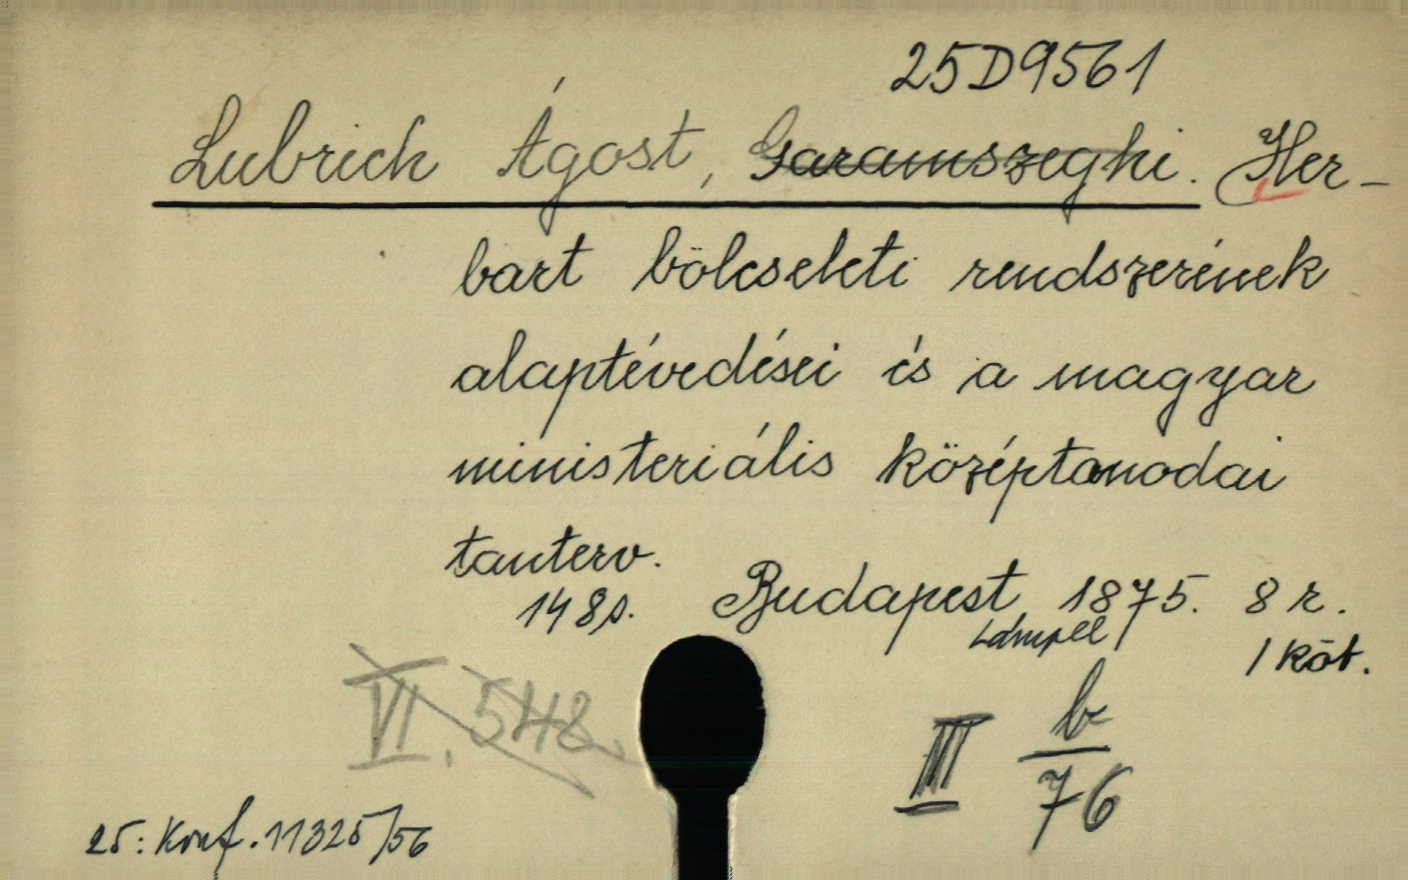 25D9561
Lubrich Ágost, Garamszeghi. Her-
bart bölcseleti rendszerének
alaptévedései és a magyar
ministeriális középtanodai
tanterv.
148p. Budapest, 1875. 8 r.
Lampel 1 köt.
VI. 548.
III b/76
25: Konf. 11325/56